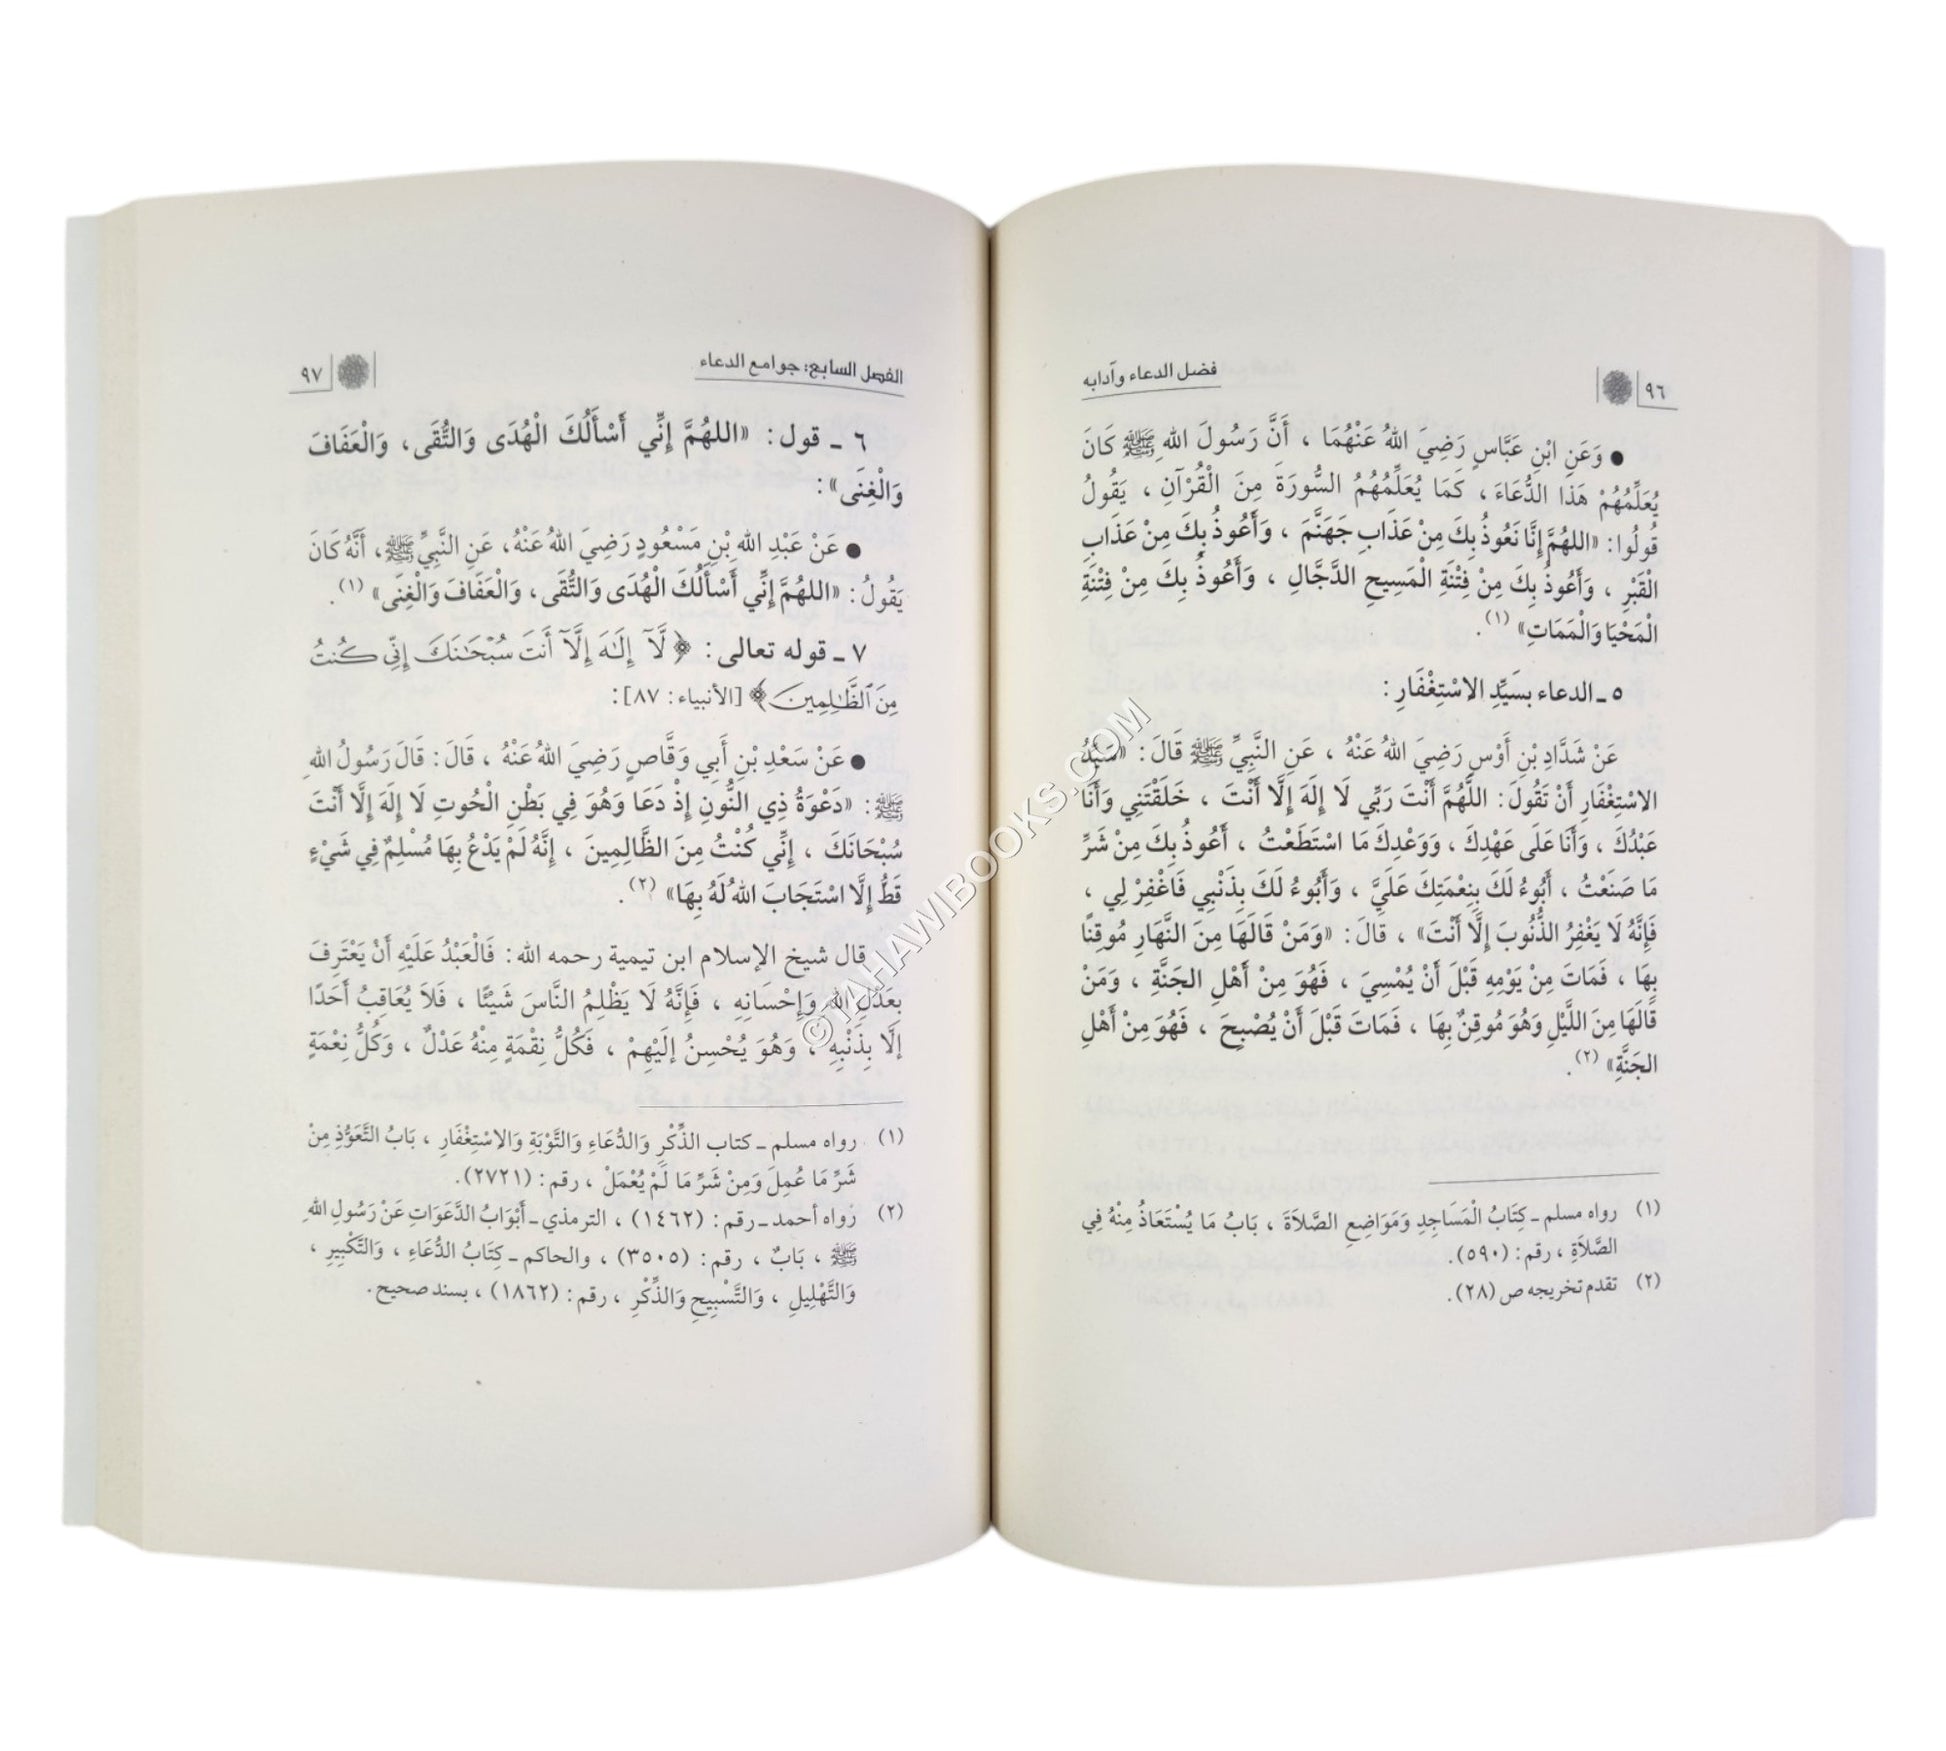 ٩٦ فضل الدعاء وآدابه
● وَعَنِ ابْنِ عَبَّاسٍ رَضِيَ اللهُ عَنْهُمَا ، أَنَّ رَسُولَ اللهِ ﷺ كَانَ
يُعَلِّمُهُمْ هَذَا الدُّعَاءَ ، كَمَا يُعَلِّمُهُمُ السُّورَةَ مِنَ الْقُرْآنِ ، يَقُولُ
قُولُوا: «اللهُمَّ إِنَّا نَعُوذُ بِكَ مِنْ عَذَابِ جَهَنَّمَ ، وَأَعُوذُ بِكَ مِنْ عَذَابِ
الْقَبْرِ ، وَأَعُوذُ بِكَ مِنْ فِتْنَةِ الْمَسِيحِ الدَّجَّالِ ، وَأَعُوذُ بِكَ مِنْ فِتْنَةِ
الْمَحْيَا وَالْمَمَاتِ» (١).
٥ ـ الدعاء بسَيِّدِ الاسْتِغْفَارِ :
عَنْ شَدَّادِ بْنِ أَوْسٍ رَضِيَ اللهُ عَنْهُ ، عَنِ النَّبِيِّ ﷺ قَالَ: «سَيِّدُ
الاسْتِغْفَارِ أَنْ تَقُولَ: اللَّهُمَّ أَنْتَ رَبِّي لَا إِلَهَ إِلَّا أَنْتَ ، خَلَقْتَنِي وَأَنَا
عَبْدُكَ ، وَأَنَا عَلَى عَهْدِكَ ، وَوَعْدِكَ مَا اسْتَطَعْتُ ، أَعُوذُ بِكَ مِنْ شَرِّ
مَا صَنَعْتُ ، أَبُوءُ لَكَ بِنِعْمَتِكَ عَلَيَّ ، وَأَبُوءُ لَكَ بِذَنْبِي فَاغْفِرْ لِي ،
فَإِنَّهُ لَا يَغْفِرُ الذُّنُوبَ إِلَّا أَنْتَ» ، قَالَ: «وَمَنْ قَالَهَا مِنَ النَّهَارِ مُوقِنًا
بِهَا ، فَمَاتَ مِنْ يَوْمِهِ قَبْلَ أَنْ يُمْسِيَ ، فَهُوَ مِنْ أَهْلِ الجَنَّةِ ، وَمَنْ
قَالَهَا مِنَ اللَّيْلِ وَهُوَ مُوقِنٌ بِهَا ، فَمَاتَ قَبْلَ أَنْ يُصْبِحَ ، فَهُوَ مِنْ أَهْلِ
الجَنَّةِ» (٢).
(١) رواه مسلم ـ كِتَابُ الْمَسَاجِدِ وَمَوَاضِعِ الصَّلاَةَ ، بَابُ مَا يُسْتَعَاذُ مِنْهُ فِي
الصَّلاَةِ ، رقم: (٥٩٠).
(٢) تقدم تخريجه ص (٢٨).
الفصل السابع: جوامع الدعاء ٩٧
٦ ـ قول: «اللهُمَّ إِنِّي أَسْأَلُكَ الْهُدَى وَالتُّقَى، وَالْعَفَافَ
وَالْغِنَى»:
● عَنْ عَبْدِ اللهِ بْنِ مَسْعُودٍ رَضِيَ اللهُ عَنْهُ، عَنِ النَّبِيِّ ﷺ، أَنَّهُ كَانَ
يَقُولُ: «اللهُمَّ إِنِّي أَسْأَلُكَ الْهُدَى وَالتُّقَى، وَالْعَفَافَ وَالْغِنَى» (١).
٧ ـ قوله تعالى: ﴿لَّآ إِلَٰهَ إِلَّآ أَنتَ سُبْحَٰنَكَ إِنِّي كُنتُ
مِنَ ٱلظَّٰلِمِينَ﴾ [الأنبياء: ٨٧]:
● عَنْ سَعْدِ بْنِ أَبِي وَقَّاصٍ رَضِيَ اللهُ عَنْهُ ، قَالَ: قَالَ رَسُولُ اللهِ
ﷺ: «دَعْوَةُ ذِي النُّونِ إِذْ دَعَا وَهُوَ فِي بَطْنِ الْحُوتِ لَا إِلَهَ إِلَّا أَنْتَ
سُبْحَانَكَ ، إِنِّي كُنْتُ مِنَ الظَّالِمِينَ ، إِنَّهُ لَمْ يَدْعُ بِهَا مُسْلِمٌ فِي شَيْءٍ
قَطُّ إِلَّا اسْتَجَابَ اللهُ لَهُ بِهَا» (٢).
قال شيخ الإسلام ابن تيمية رحمه الله: فَالْعَبْدُ عَلَيْهِ أَنْ يَعْتَرِفَ
بِعَدْلِ اللهِ وَإِحْسَانِهِ ، فَإِنَّهُ لَا يَظْلِمُ النَّاسَ شَيْئًا ، فَلاَ يُعَاقِبُ أَحَدًا
إِلَّا بِذَنْبِهِ ، وَهُوَ يُحْسِنُ إِلَيْهِمْ ، فَكُلُّ نِقْمَةٍ مِنْهُ عَدْلٌ ، وَكُلُّ نِعْمَةٍ
(١) رواه مسلم ـ كتاب الذِّكْرِ وَالدُّعَاءِ وَالتَّوْبَةِ وَالاسْتِغْفَارِ ، بَابُ التَّعَوُّذِ مِنْ
شَرِّ مَا عُمِلَ وَمِنْ شَرِّ مَا لَمْ يُعْمَلْ ، رقم: (٢٧٢١).
(٢) رواه أحمد ـ رقم: (١٤٦٢) ، الترمذي ـ أَبْوَابُ الدَّعَوَاتِ عَنْ رَسُولِ اللهِ
ﷺ ، بَابٌ ، رقم: (٣٥٠٥) ، والحاكم ـ كِتَابُ الدُّعَاءِ ، وَالتَّكْبِيرِ ،
وَالتَّهْلِيلِ ، وَالتَّسْبِيحِ وَالذِّكْرِ ، رقم: (١٨٦٢) ، بسند صحيح.
©TAHAWIBOOKS.COM